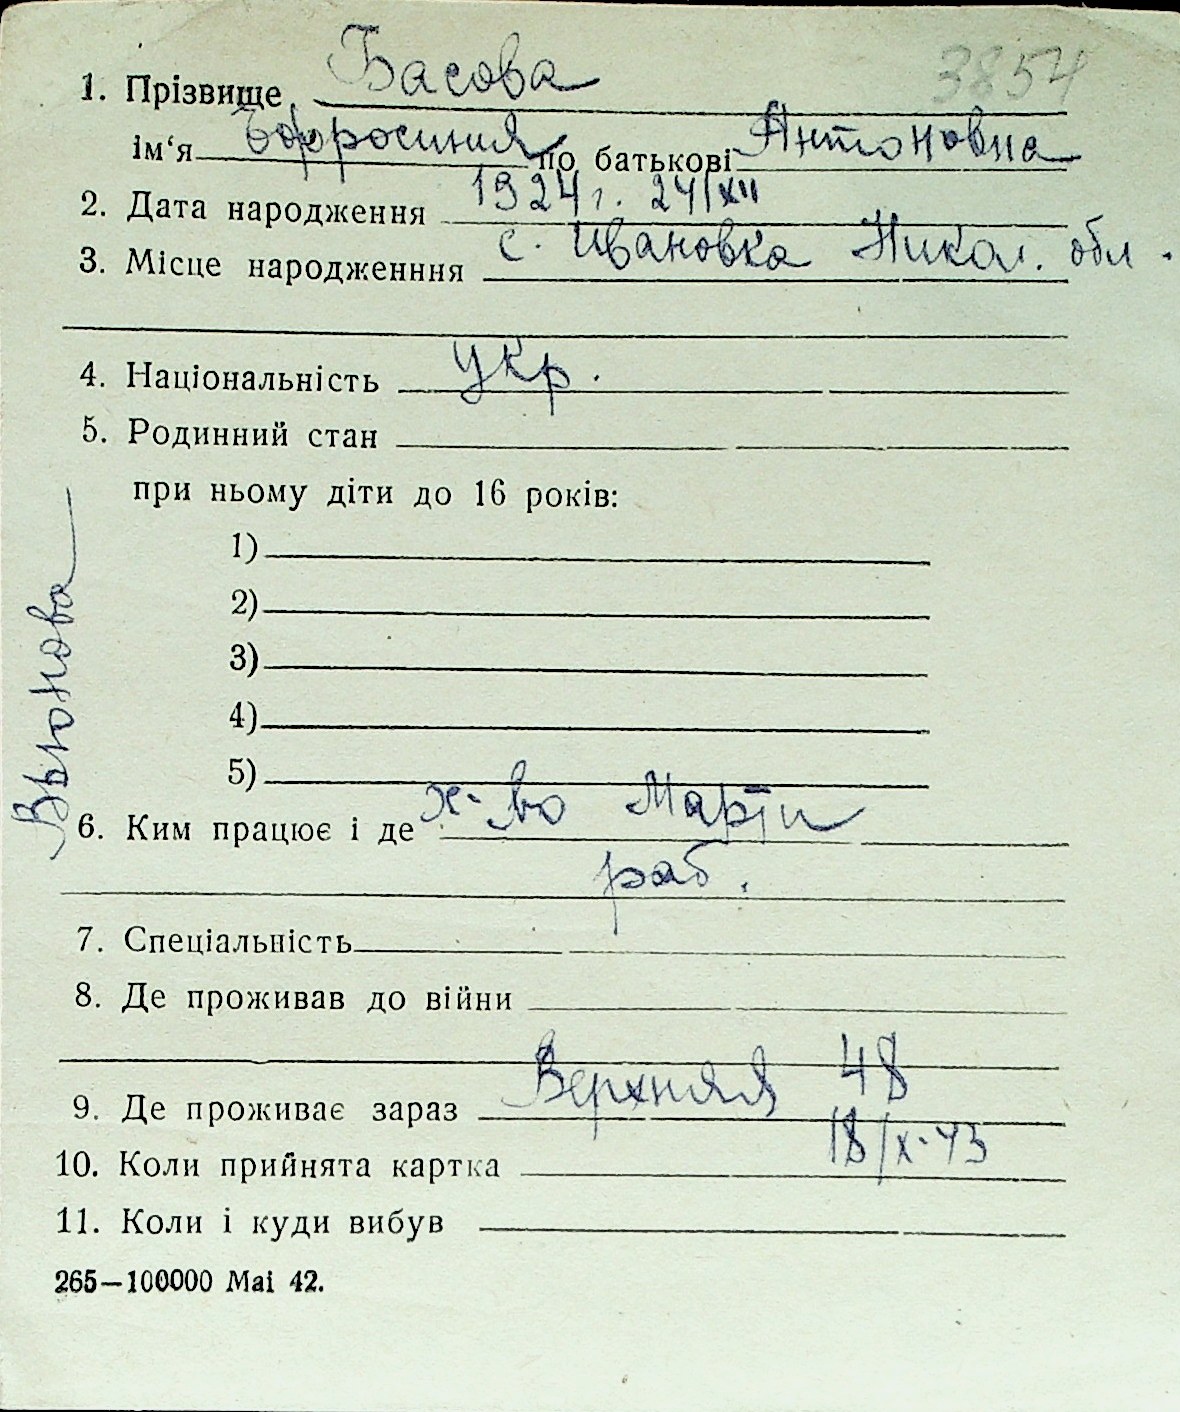 3854
1. Прізвище Басова
ім‘я Ефросиния по батькові Антоновна
2. Дата народження 1924 г. 24/XII
3. Місце народженння с. Ивановка Никол. обл.
4. Національність укр.
5. Родинний стан
при ньому діти до 16 років:
1)
2)
3)
4)
5)
6. Ким працює і де х-во Мартін
раб.
7. Спеціальність
8. Де проживав до війни
9. Де проживає зараз Верхняя 48
10. Коли прийнята картка 18/X-43
11. Коли і куди вибув
265—100000 Mai 42.